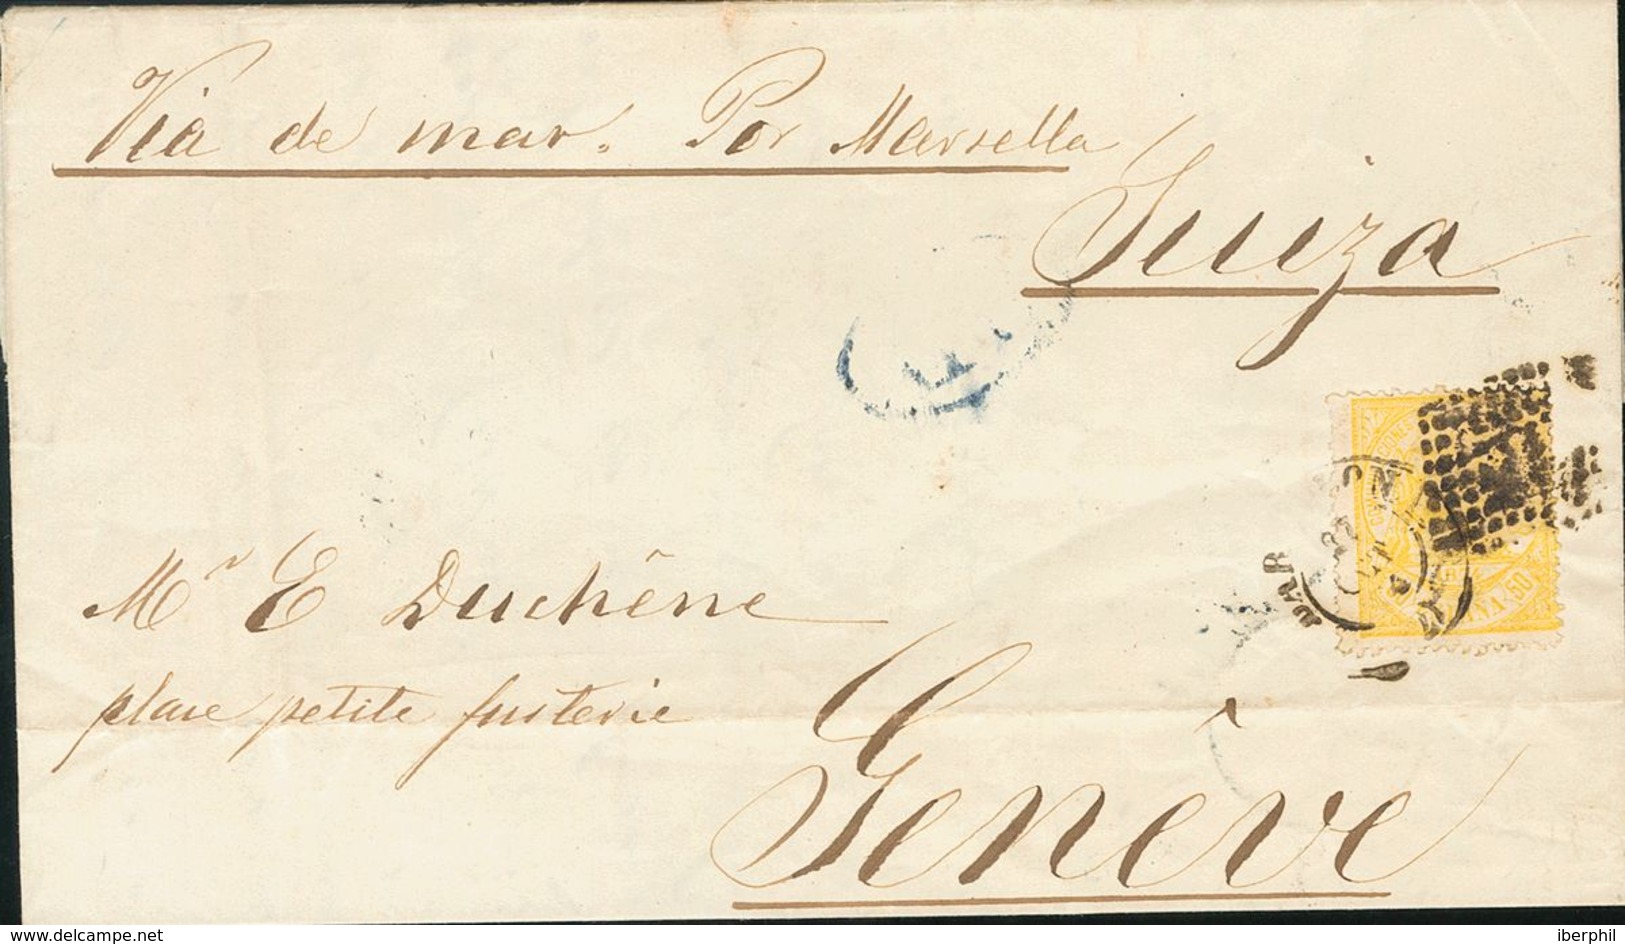 Via de mar. Por Marsella
Suiza
Mr E Duchêne
place petite fusterie
Genêve
50
delcampe.net
iberphil